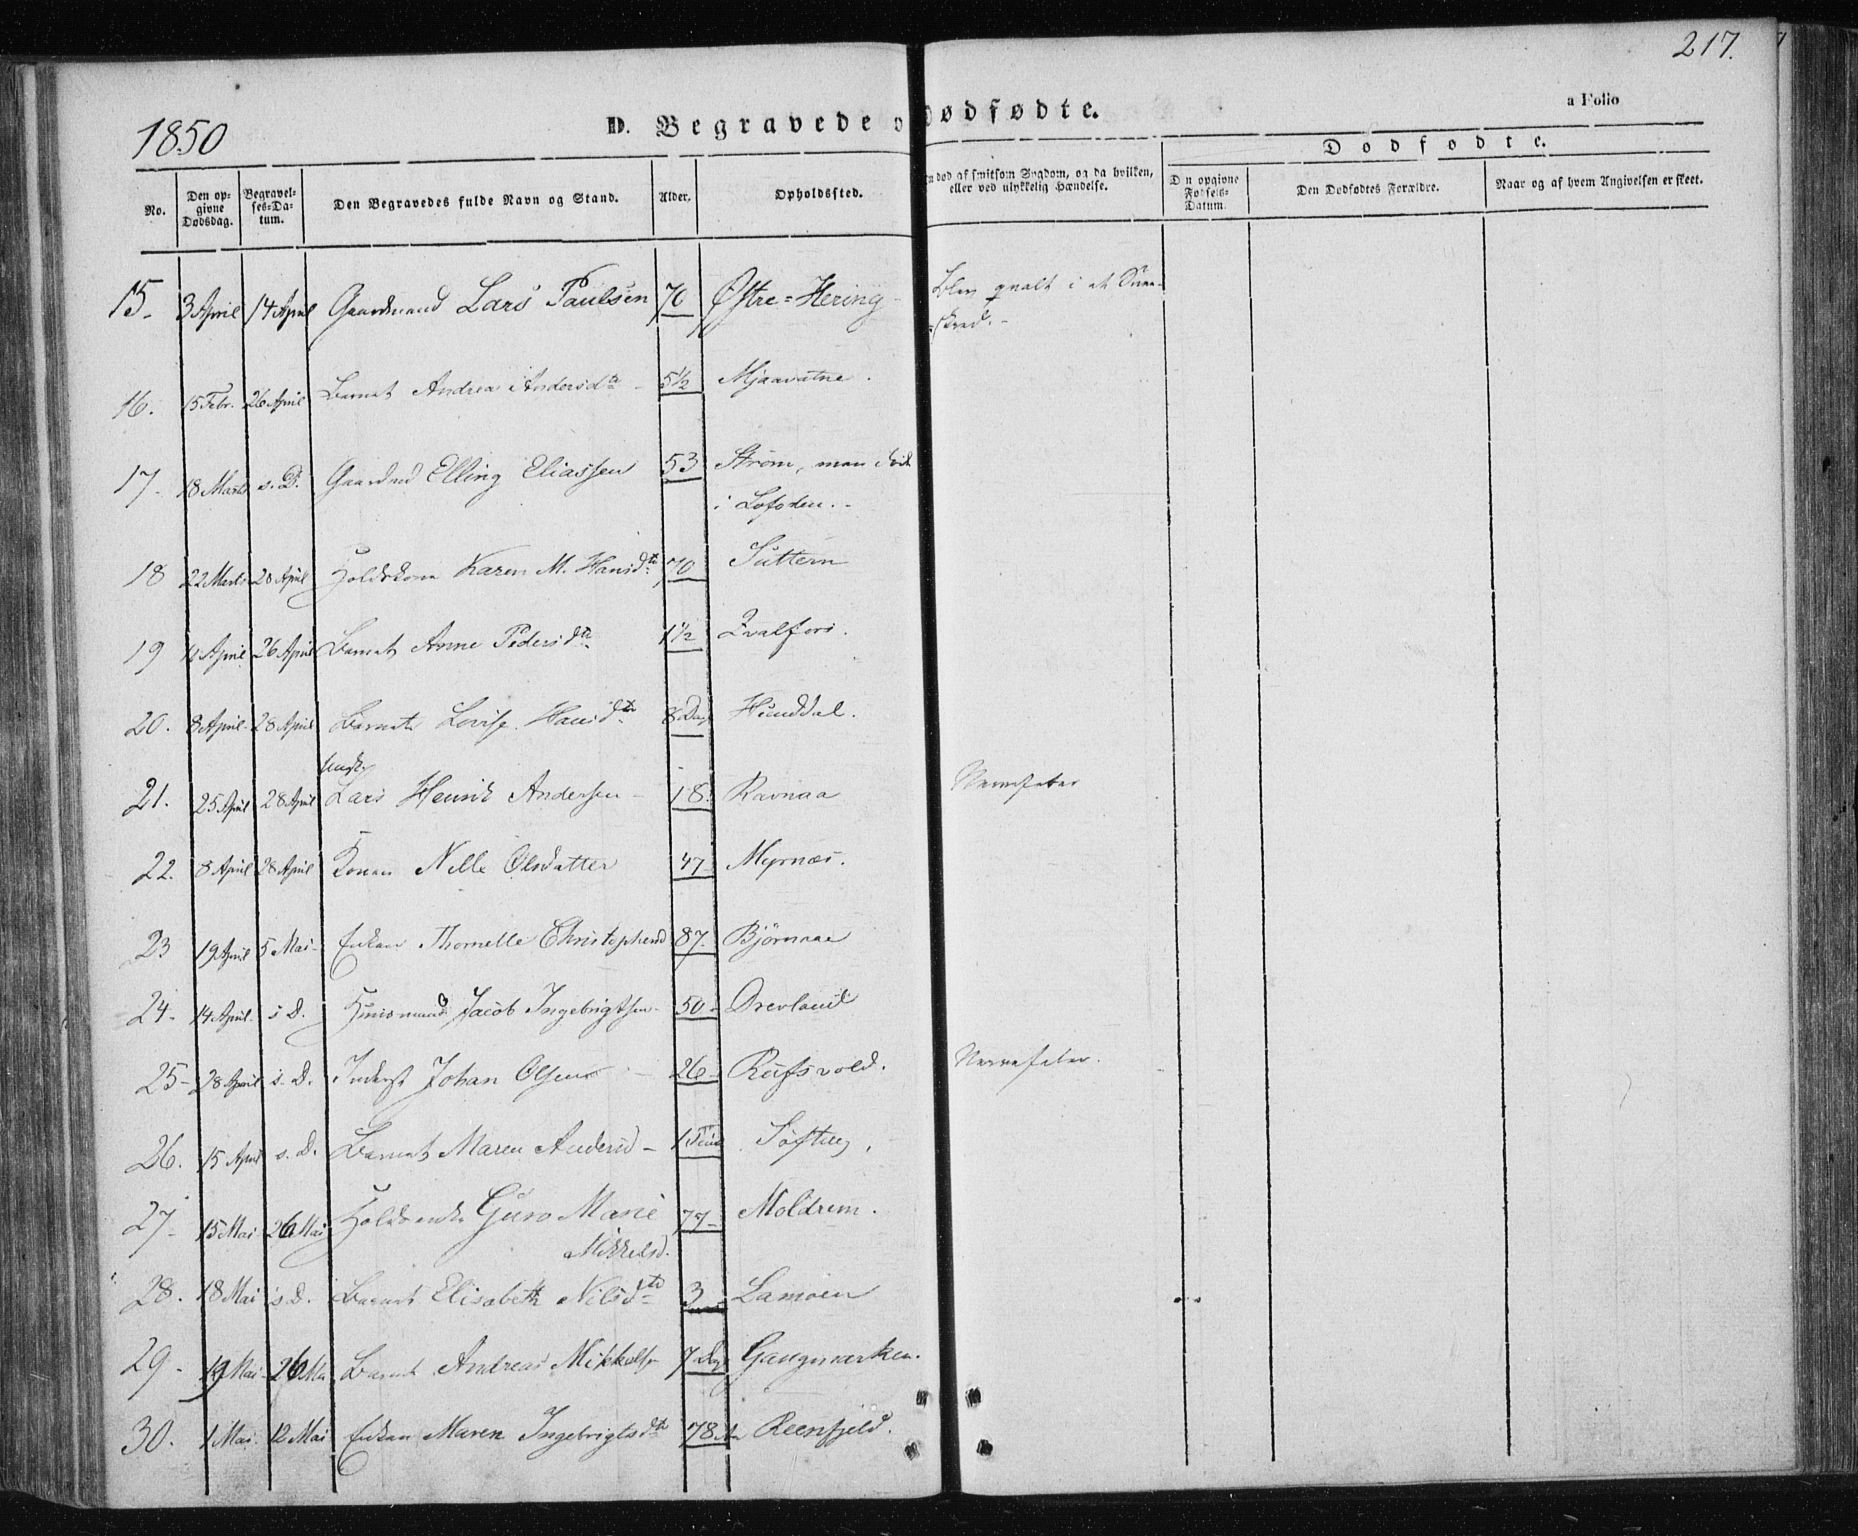 217.
1850
D. Begravede o dødfødte.
a Folio
No.
Den op-
givne
Dødsdag.
Begravel-
ses-Da-
tum.
Den Begravedes fulde Navn og Stand.
Alder.
Opholdssted.
død af smitsom Sygdom, og da hvilken,
eller ved ulykkelig Hændelse.
Dødfødte.
D n opgivne
Fødsels-
Datum.
Den Dødfødtes Forældre.
Naar og af hvem Angivelsen er skeet.
15. 3 April 14 April Gaardmand Lars Paulsen 70 Østre=Hering Blev qvalt i et Snee-
skred.
16. 15 Febr. 26 April Barnet Andrea Andersdtr 5½ Mjaavatne.
17. 18 Marts s. D. Gaardmd Elling Eliassen 53 Strøm, men død
i Lofoden.
18 22 Marts 28 April Holdskone Karen M. Hansdtr 70 Suttern
19 4 April 26 April Barnet Anne Pedersdtr 1½ Hvalfors.
20. 8 April 28 April Barnet Lovise Hansdtr 8 Dage Hunddal.
Ungk.
21. 25 April 28 April Lars Henrik Andersen 18 Ravnaa Nervefeber
22. 8 April 28 April Konen Nelle Olsdatter 47 Myrnæs.
23 19 April 5 Mai Enken Thornelle Christophersd 87 Björnaae
24. 14 April s D. Huusmand Jacob Ingebrigtsen 50 Drevland
25 28 April s. D. Inderst Johan Olsen 26 Rufsvold. Nervefeber.
26. 15 April s. D. Barnet Maren Andersd 1 Søfting
27 15 Mai 26 Mai Holdsenke Guro Marie 77 Moldrem.
Mikkelsd.
28. 18 Mai s. D. Barnet Elisabeth Nilsdtr 3 Lamoen
29 19 Mai 26 Mai Barnet Andreas Mikkelsen 7 Dage Gangmarken.
30. 1 Mai 12 Mai Enken Maren Ingebrigtsdtr 78 Aar Reenfjeld.